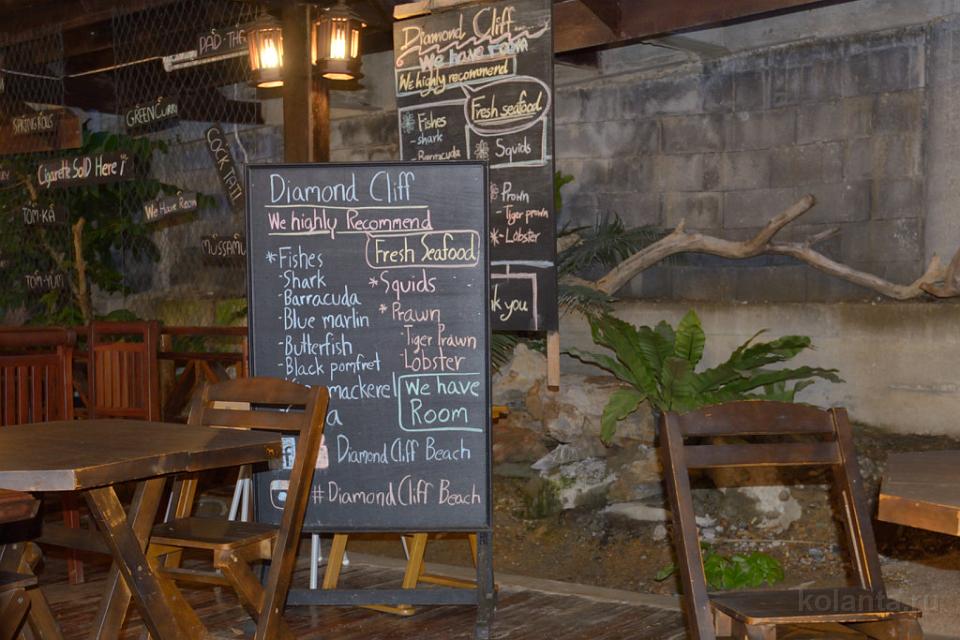 PAD-THAI
SPRING ROLLS
GREEN CURRY
Cigarette SOLD Here!
COCKTAIL
TOM-KA
We Have Room
MUSSAMU
TOM-YUM
Diamond Cliff
We have room
We highly recommend
Fresh Seafood
* Fishes
- shark
- Barracuda
* Squids
* Prawn
- Tiger prawn
* Lobster
k you
Diamond Cliff
We highly Recommend
Fresh Seafood
* Fishes
- Shark
- Barracuda
- Blue marlin
- Butterfish
- Black pomfret
mackerel
a
* Squids
* Prawn
- Tiger Prawn
- Lobster
We have
Room
Diamond Cliff Beach
# Diamond Cliff Beach
kolanta.ru